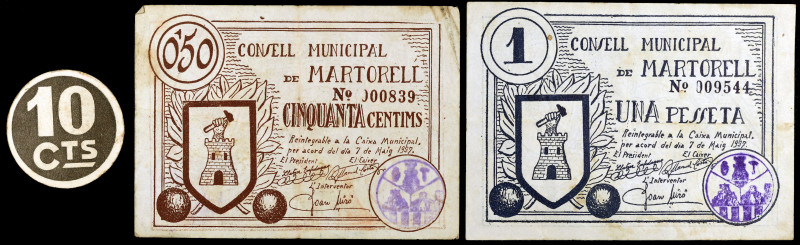 10
CTS
0'50
CONSELL MUNICIPAL
DE MARTORELL
Nº 000839
CINQUANTA CENTIMS
Reintegrable a la Caixa Municipal,
per acord del día 7 de Maig 1937.
El President El Caixer
L'Interventor
Joan Miró
1
CONSELL MUNICIPAL
DE MARTORELL
Nº 009544
UNA PESSETA
Reintegrable a la Caixa Municipal,
per acord del día 7 de Maig 1937.
El President El Caixer
L'Interventor
Joan Miró